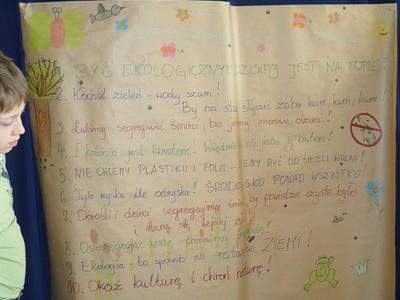 1. BYĆ EKOLOGICZNYM DZISIAJ JEST NA TOPIE!
2. Kochać zieleń - wody szum!
By na sto słyszeć żabie kum, kum, kum!
3. Lubimy segregować śmieci, bo jemy morowe dzieci!
4. Ekologia jest kwiatem. Więdnie na jest bratem!
5. NIE CHCEMY PLASTIKU I FOLII - BY BYĆ OD ŚMIECI WOLNI!
6. Tyle zyska ile odzyska! ŚRODOWISKO PONAD WSZYSTKO!
7. Dorośli i dzieci segregujmy śmieci by powietrze czyste było
i nam się lepiej żyło
8. Oszczędzając wodę - chronimy przyrodę!
9. Ekologia - to sposób na ratowanie ZIEMI!
10. Okaż kulturę i chroń naturę!